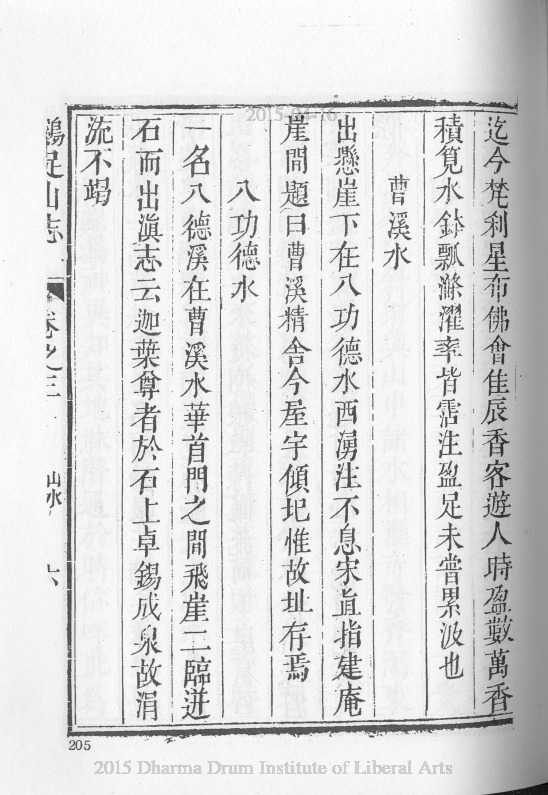 2015-04-16
迄今梵刹星布佛會佳辰香客遊人時盈數萬香
積筧水鉢瓢滌濯率皆霑注盈足未嘗累汲也
曹溪水
出懸崖下在八功德水西湧注不息宋直指建庵
崖間題曰曹溪精舍今屋宇傾圮惟故址存焉
八功德水
一名八德溪在曹溪水華首門之間飛崖二臨迸
石而出滇志云迦葉尊者於石上卓錫成泉故涓
流不竭
雞足山志
卷之三
山水
六
205
2015 Dharma Drum Institute of Liberal Arts